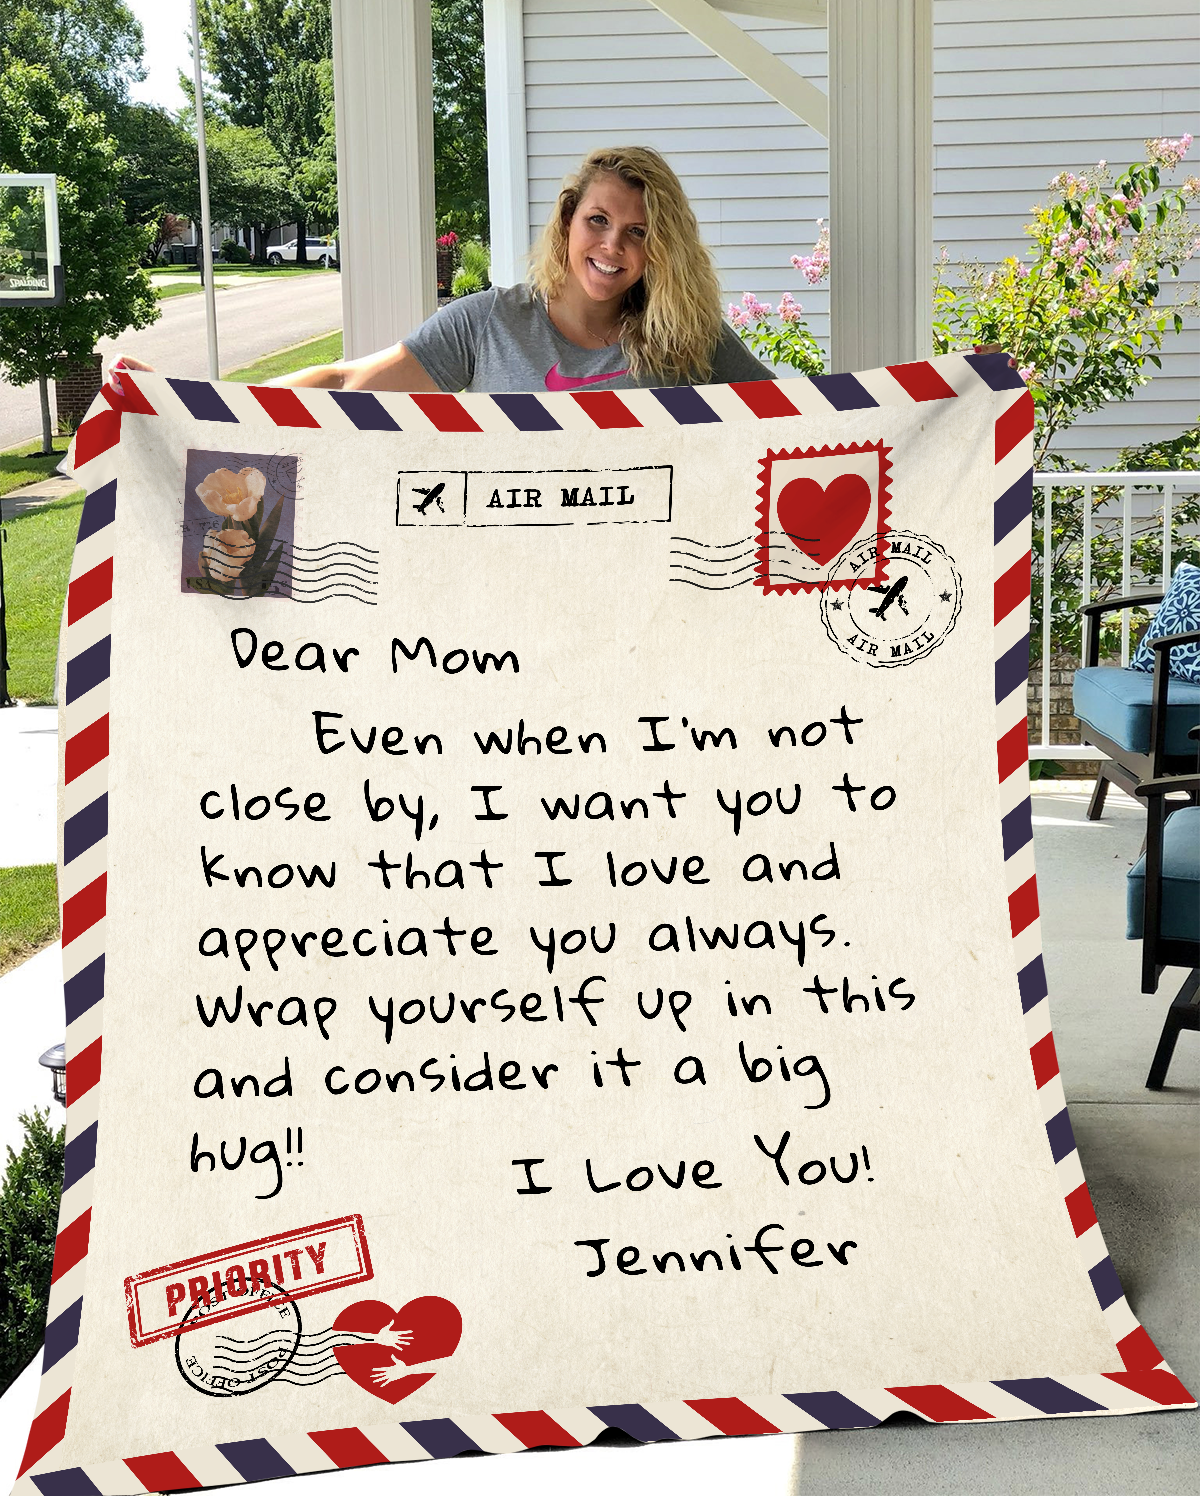 SPALDING
AIR MAIL
AIR MAIL
AIR MAIL
Dear Mom
Even when I'm not
close by, I want you to
know that I love and
appreciate you always.
Wrap yourself up in this
and consider it a big
hug!!
I Love You!
Jennifer
PRIORITY
POST OFFICE
POST OFFICE